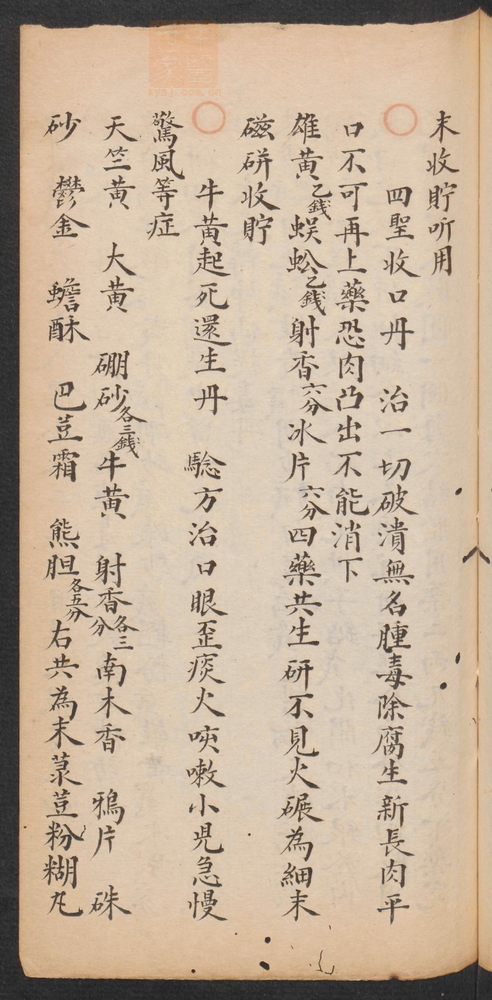 末收貯听用
四聖收口丹 治一切破潰無名腫毒除腐生新長肉平
口不可再上藥恐肉凸出不能消下
雄黃乙錢 蜈蚣乙錢 射香六分 冰片六分 四藥共生研不見火碾為細末
磁砰收貯
牛黃起死還生丹 驗方治口眼歪痰火咳嗽小児急慢
驚風等症
天竺黃 大黃 硼砂各三錢 牛黃 射香各三分 南木香 鴉片 硃
砂 鬱金 蟾酥 巴荳霜 熊胆各五分 右共為末菉荳粉糊丸